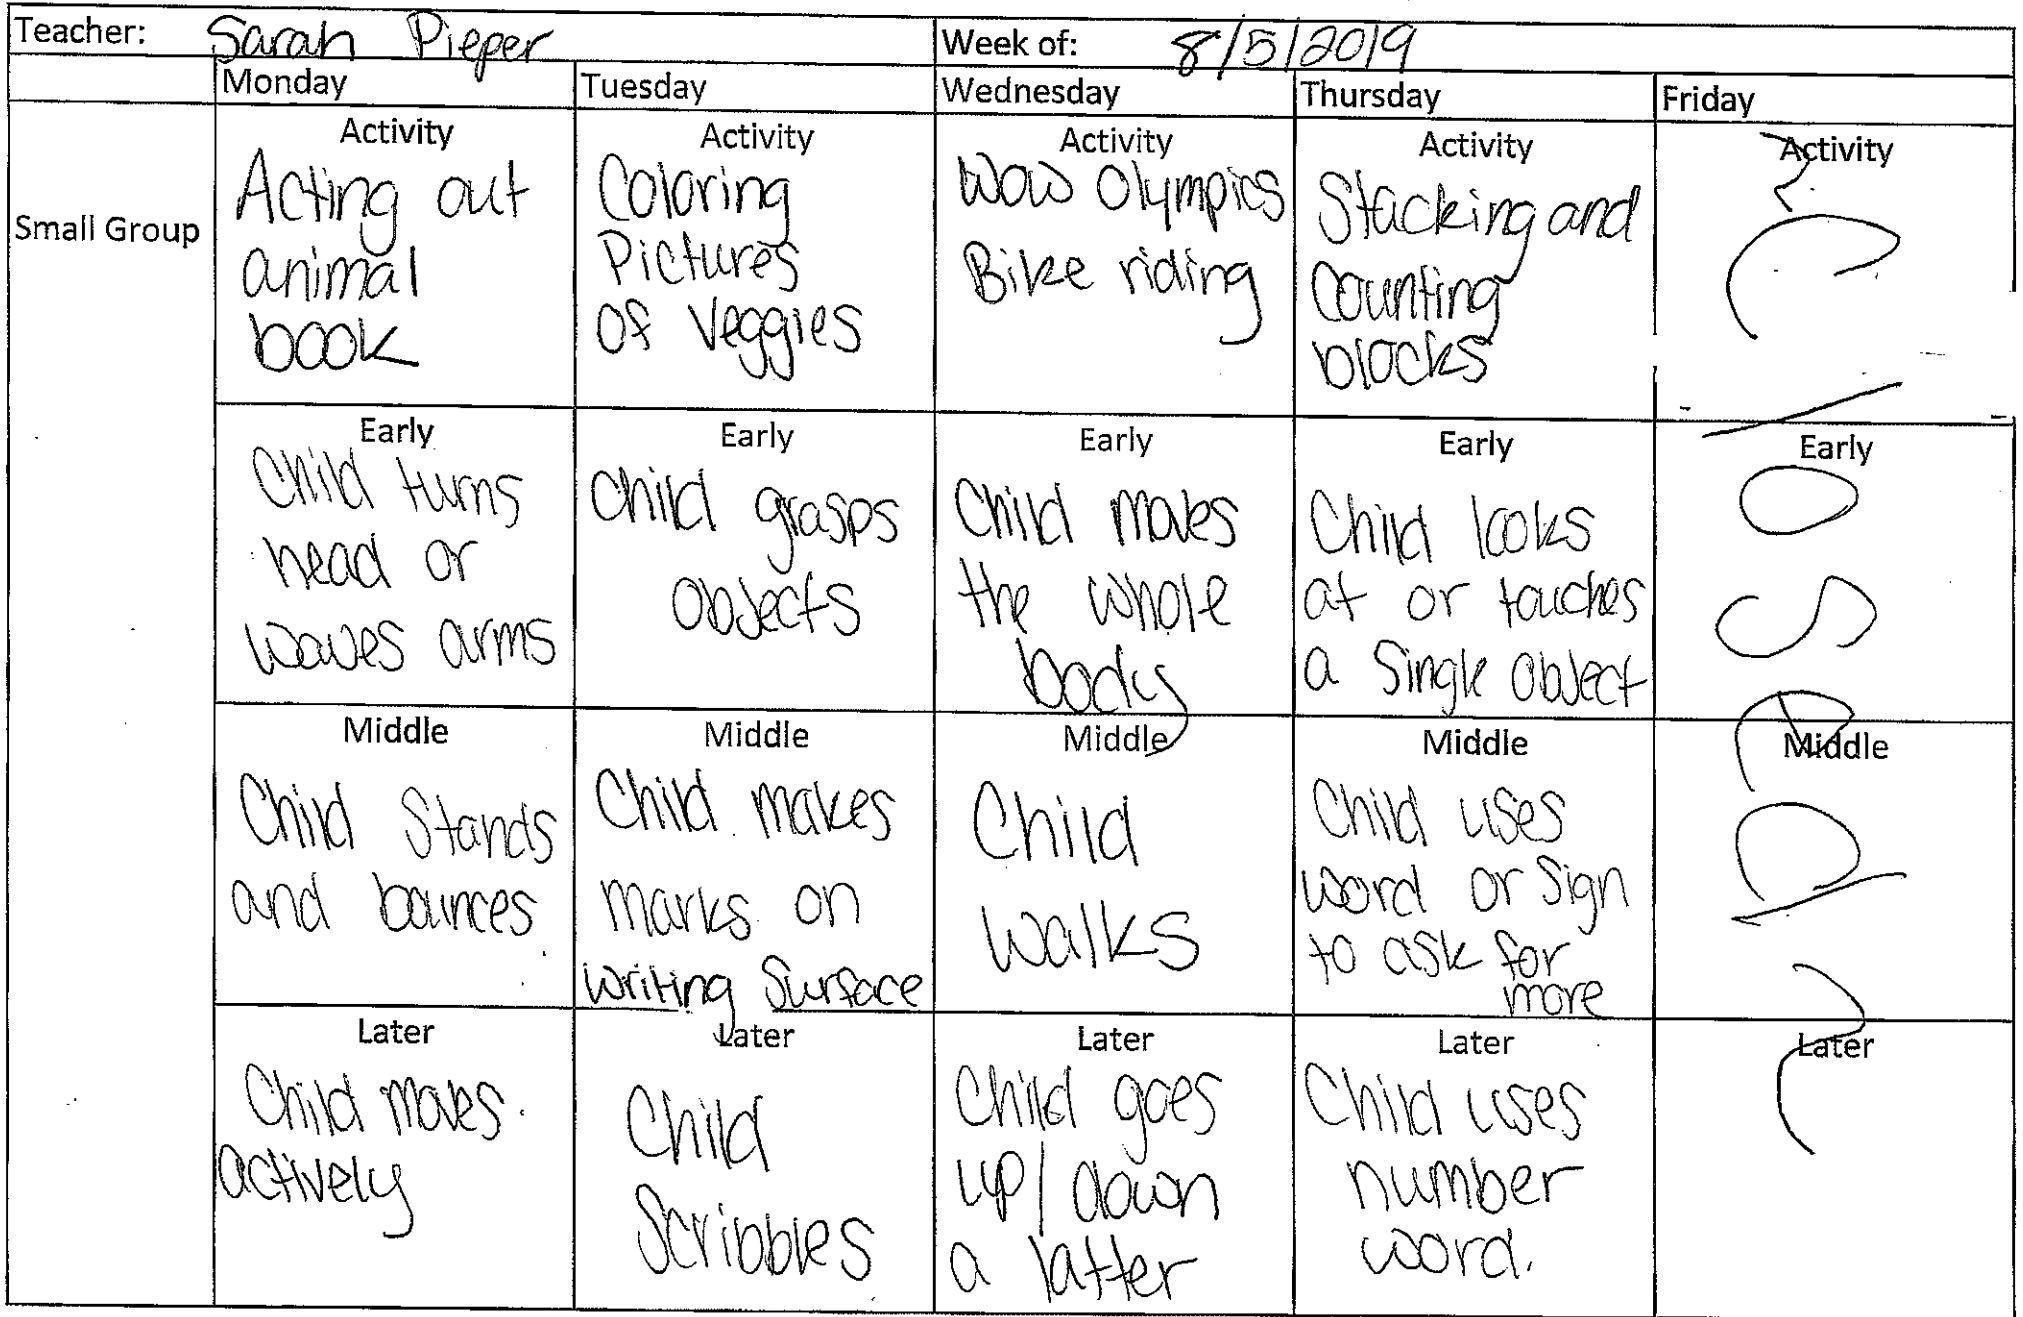 Teacher: Sarah Pieper
Week of: 8/5/2019
Monday
Tuesday
Wednesday
Thursday
Friday
Small Group
Activity
Acting out
animal
book
Activity
Coloring
Pictures
Of Veggies
Activity
Wow Olympics
Bike riding
Activity
Stacking and
Counting
blocks
Activity
~Closed~
Early
Child turns
head or
waves arms
Early
Child grasps
Objects
Early
Child moves
the whole
body
Early
Child looks
at or touches
a Single Object
Early
Middle
Child Stands
and bounces
Middle
Child makes
marks on
writing Surface
Middle
Child
walks
Middle
Child uses
word or Sign
to ask for
more
Middle
Later
Child moves
actively
Later
Child
Scribbles
Later
Child goes
up/down
a latter
Later
Child uses
number
word.
Later